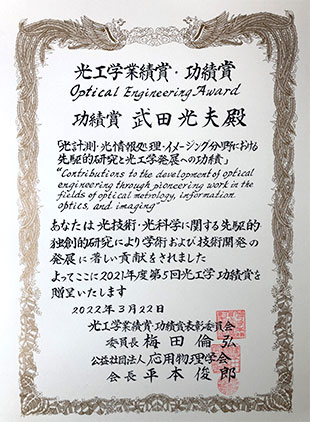 光工学業績賞・功績賞
Optical Engineering Award
功績賞 武田光夫殿
「光計測・光情報処理・イメージング分野における
先駆的研究と光工学発展への功績」
"Contributions to the development of optical
engineering through pioneering work in the
fields of optical metrology, information
optics, and imaging"
あなたは光技術・光科学に関する先駆的・
独創的研究により学術および技術開発の
発展に著しい貢献をされました
よってここに2021年度第5回光工学功績賞を
贈呈いたします
2022年3月22日
光工学業績賞・功績賞表彰委員会
委員長 梅田倫弘
公益社団法人 応用物理学会
会長 平本俊郎